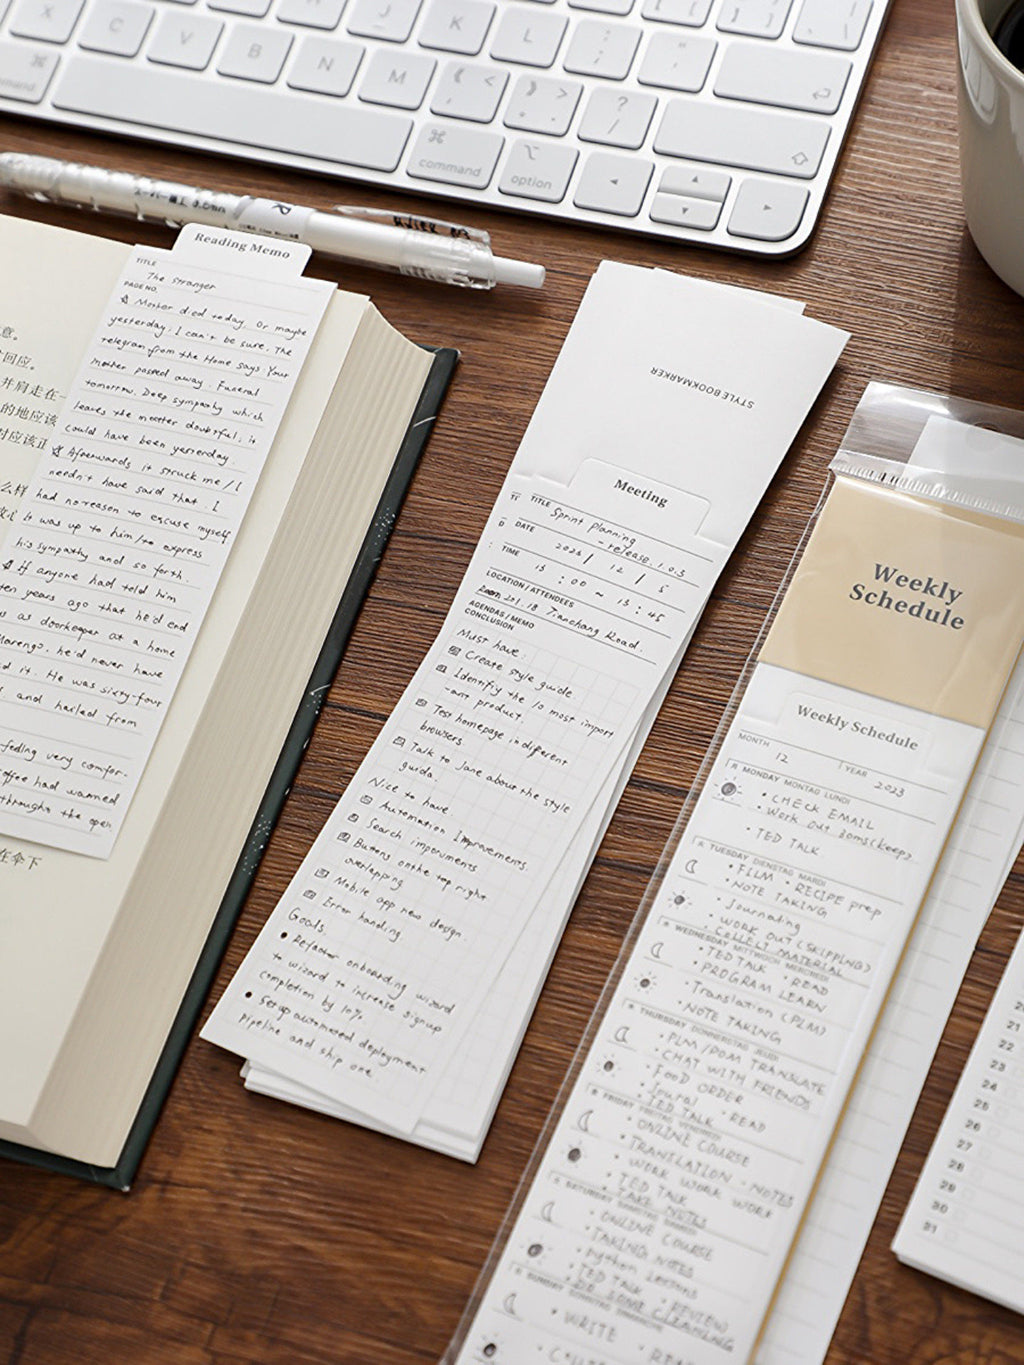 X
C
V
B
N
M
J
K
L
command
command
option
Reading Memo
TITLE
The stranger
PAGE NO.
Mother died today. Or maybe
yesterday; I can't be sure. The
telegram from the Home says: Your
mother passed away. Funeral
tomorrow. Deep sympathy which
leaves the matter doubtful; it
could have been yesterday.
Afterwards it struck me / I
needn't have said that. I
had no reason to excuse myself
it was up to him/to express
his sympathy and so forth.
if anyone had told him
ten years ago that he'd end
as doorkeeper at a home
Marengo, he'd never have
it. He was sixty-four
and hailed from
feeling very comfor-
coffee had warmed
through the open
意。
回应。
并肩走在一
的地应该
时应该正
么样
在伞下
STYLE BOOKMARKER
Meeting
TITLE Sprint planning
- release 1.0.3
DATE
12 / 5
TIME
13 : 00 ~ 13 : 45
LOCATION / ATTENDEES
Room 201. 18 Tianchang Road.
AGENDAS / MEMO
CONCLUSION
Must have:
Create style guide
Identifiy the 10 most import
-ant product.
Test homepage in different
browsers.
Talk to Jane about the style
guida.
Nice to have.
Automation Improvements.
Search imporvments
Buttons on the top right
overlapping
Mobile app new design.
Error handing
Goals
Refactor onboarding wizard
to wizard to increase signup
completion by 10%.
Setup automated deployment
Pipeline and ship one.
Weekly
Schedule
Weekly Schedule
MONTH 12 YEAR 2023
MONDAY MONTAG LUNDI
CHECK EMAIL
Work out 30ms(keep)
TED TALK
TUESDAY DIENSTAG MARDI
FILM • RECIPE prep
NOTE TAKING
Journaling
WORK OUT (SKIPPING)
COLLECT MATERIAL
WEDNESDAY MITTWOCH MERCREDI
TED TALK • READ
PROGRAM LEARN
Translation (PLM)
NOTE TAKING
THURSDAY DONNERSTAG JEUDI
PLM/PDM TRANSLATE
CHAT WITH FRIENDS
FOOD ORDER
Journal • READ
TED TALK
FRIDAY FREITAG VENDREDI
ONLINE COURSE
TRANSLATION • NOTES
WORK WORK WORK
TED TALK
TAKE NOTES
SATURDAY SAMSTAG SAMEDI
ONLINE COURSE
TAKING NOTES
Python Lessons
TED TALK • REVIEW
DO SOME CLEANING
SUNDAY SONNTAG DIMANCHE
WRITE
21
22
23
24
25
26
27
28
29
30
31